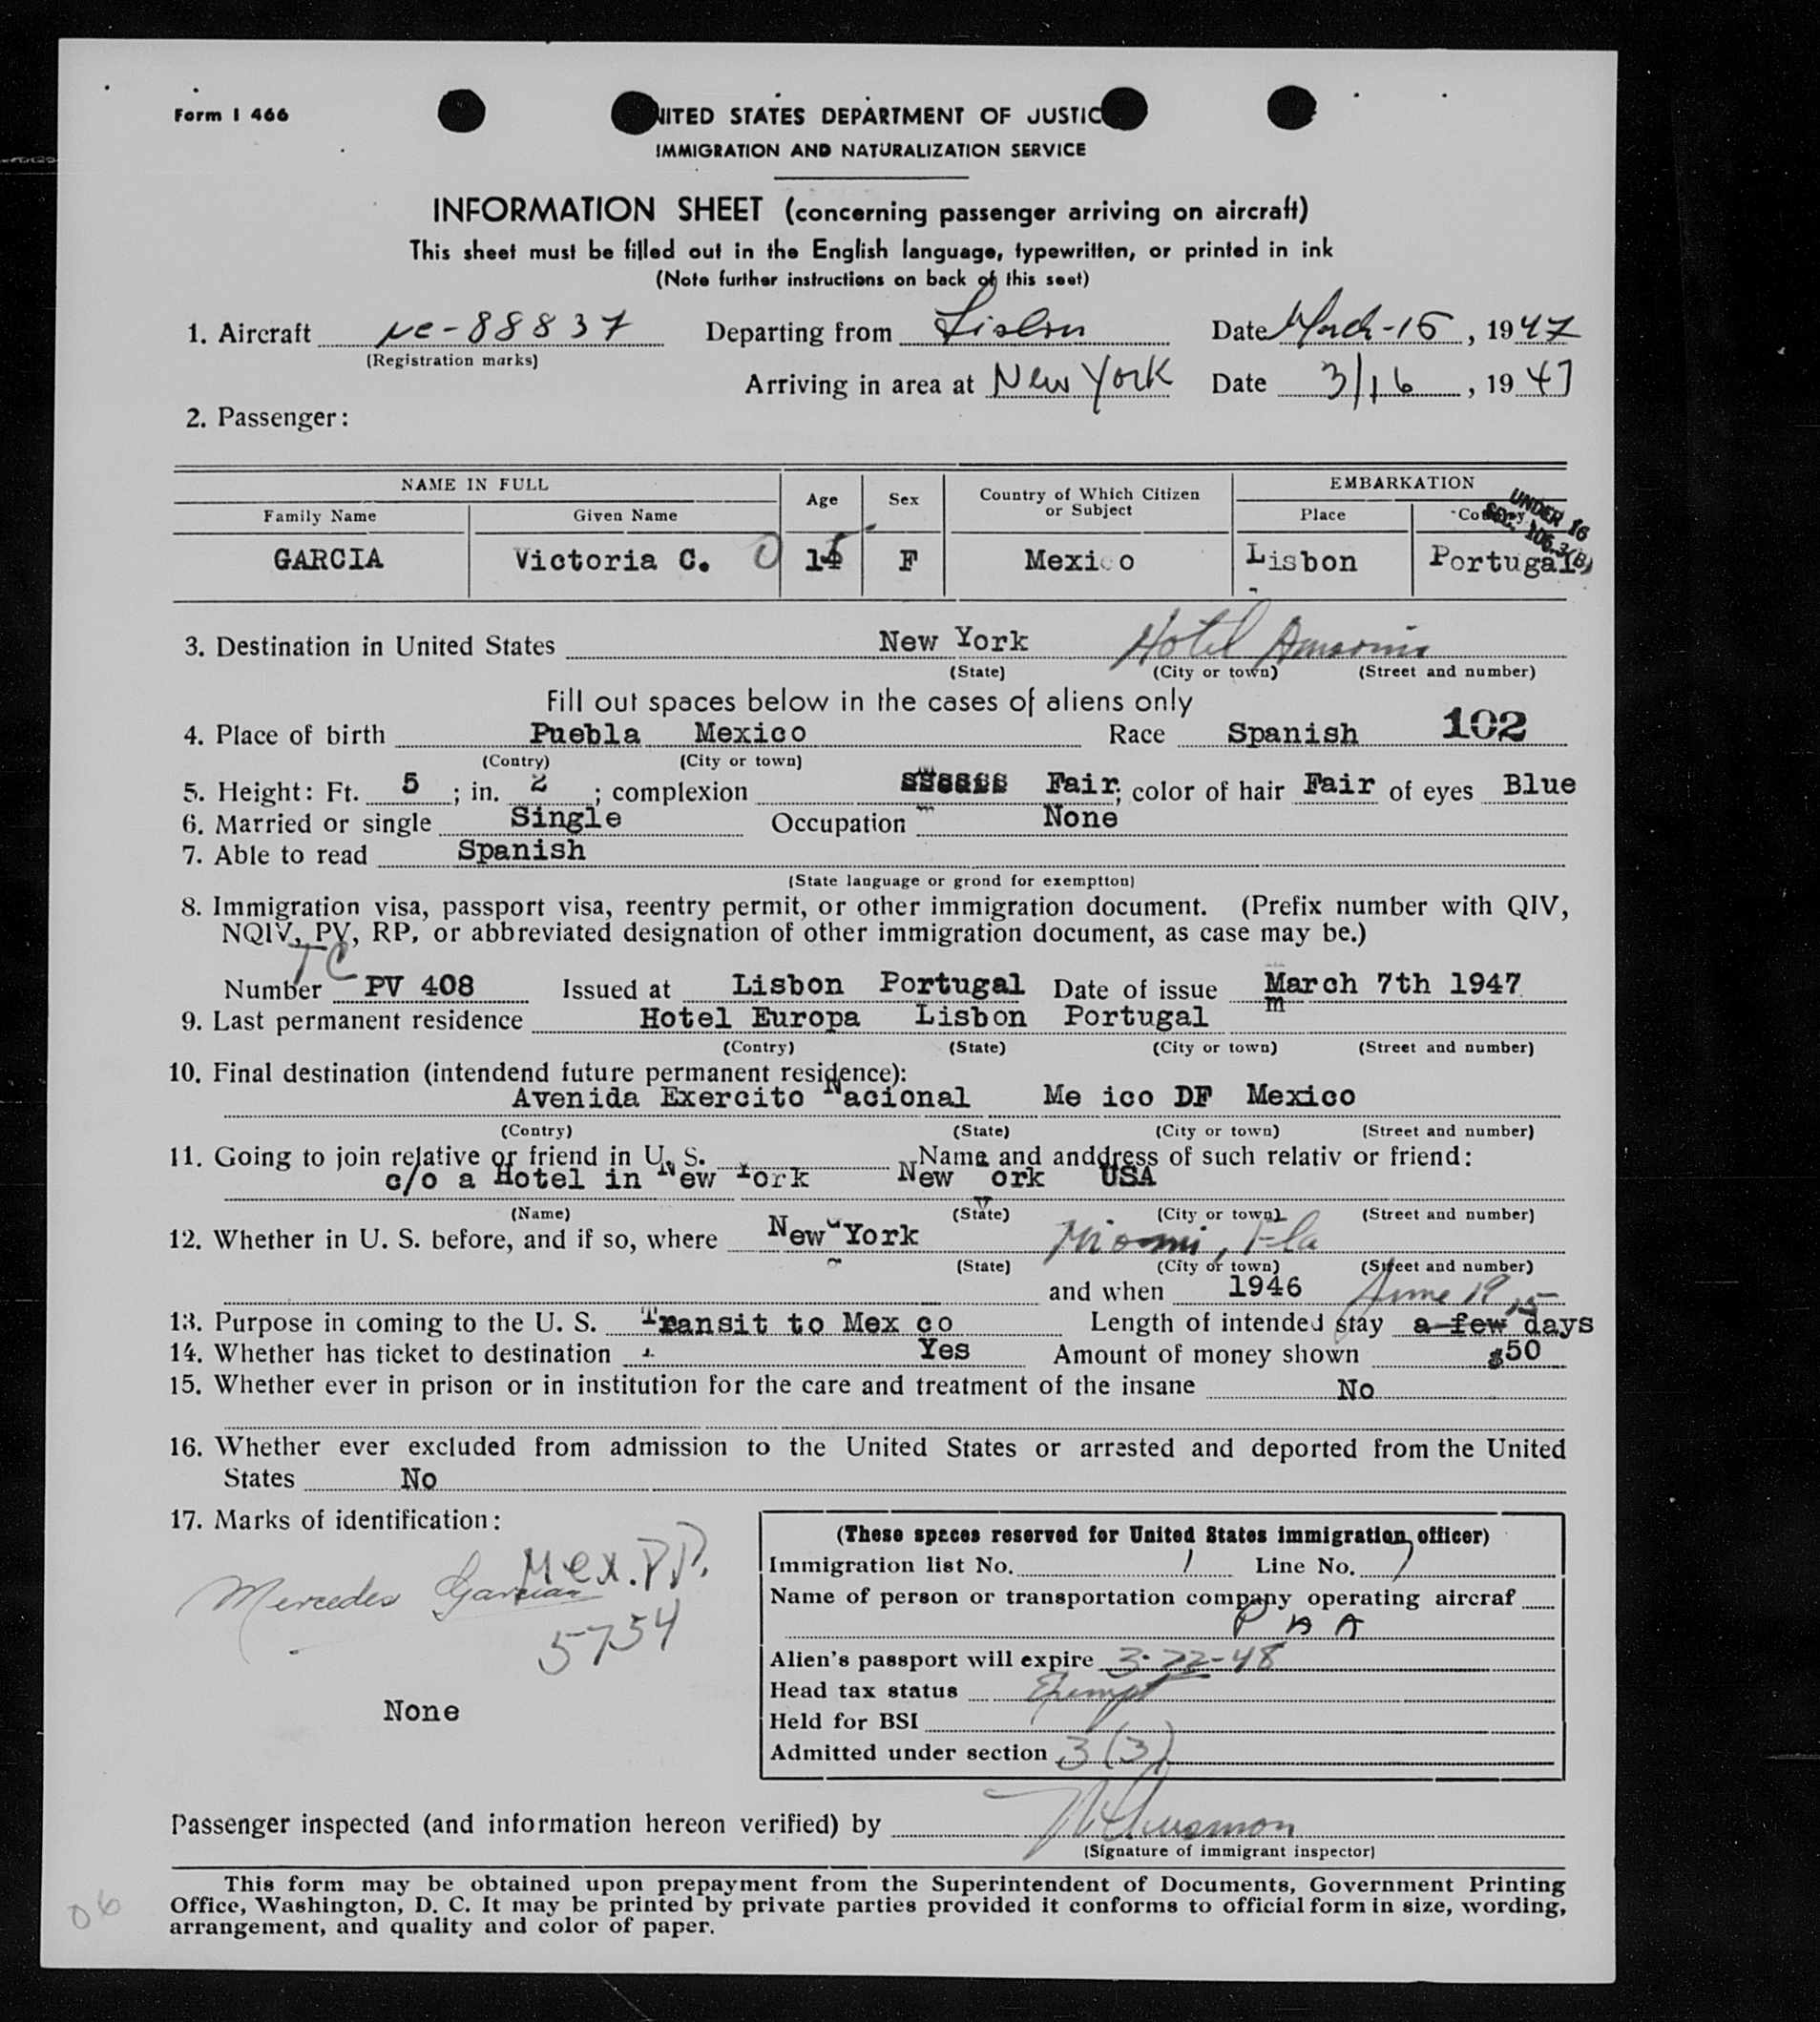 Form I 466
NITED STATES DEPARTMENT OF JUSTIC
IMMIGRATION AND NATURALIZATION SERVICE
INFORMATION SHEET (concerning passenger arriving on aircraft)
This sheet must be filled out in the English language, typewritten, or printed in ink
(Note further instructions on back of this seet)
1. Aircraft NC-88837 Departing from Lisbon Date March-15, 1947
(Registration marks)
Arriving in area at New York Date 3/16, 1947
2. Passenger:
NAME IN FULL Age Sex Country of Which Citizen or Subject EMBARKATION
Family Name Given Name Place Country
UNDER 16
SEC. 106.3(B)
GARCIA Victoria C. 15 F Mexico Lisbon Portugal
3. Destination in United States New York Hotel
(State) (City or town) (Street and number)
Fill out spaces below in the cases of aliens only
4. Place of birth Puebla Mexico Race Spanish 102
(Contry) (City or town)
5. Height: Ft. 5; in. 2; complexion Fair; color of hair Fair of eyes Blue
6. Married or single Single Occupation None
7. Able to read Spanish
(State language or grond for exemptton)
8. Immigration visa, passport visa, reentry permit, or other immigration document. (Prefix number with QIV,
NQIV, PV, RP, or abbreviated designation of other immigration document, as case may be.)
TC
Number PV 408 Issued at Lisbon Portugal Date of issue March 7th 1947
9. Last permanent residence Hotel Europa Lisbon Portugal
(Contry) (State) (City or town) (Street and number)
10. Final destination (intendend future permanent residence):
Avenida Exercito Nacional Me ico DF Mexico
(Contry) (State) (City or town) (Street and number)
11. Going to join relative or friend in U. S. Name and anddress of such relativ or friend:
c/o a Hotel in New York New ork USA
(Name) (State) (City or town) (Street and number)
12. Whether in U. S. before, and if so, where New York Miami, Fla
(State) (City or town) (Street and number)
and when 1946 June 19
13. Purpose in coming to the U. S. Transit to Mex co Length of intended stay a few days 15
14. Whether has ticket to destination Yes Amount of money shown $50
15. Whether ever in prison or in institution for the care and treatment of the insane No
16. Whether ever excluded from admission to the United States or arrested and deported from the United
States No
17. Marks of identification:
Mex. P.P.
Mercedes Garcia
5754
None
(These spaces reserved for United States immigration officer)
Immigration list No. 1 Line No. 7
Name of person or transportation company operating aircraf
P A A
Alien's passport will expire 3-22-48
Head tax status Exempt
Held for BSI
Admitted under section 3(3)
Passenger inspected (and information hereon verified) by
(Signature of immigrant inspector)
This form may be obtained upon prepayment from the Superintendent of Documents, Government Printing
Office, Washington, D. C. It may be printed by private parties provided it conforms to official form in size, wording,
arrangement, and quality and color of paper.
06